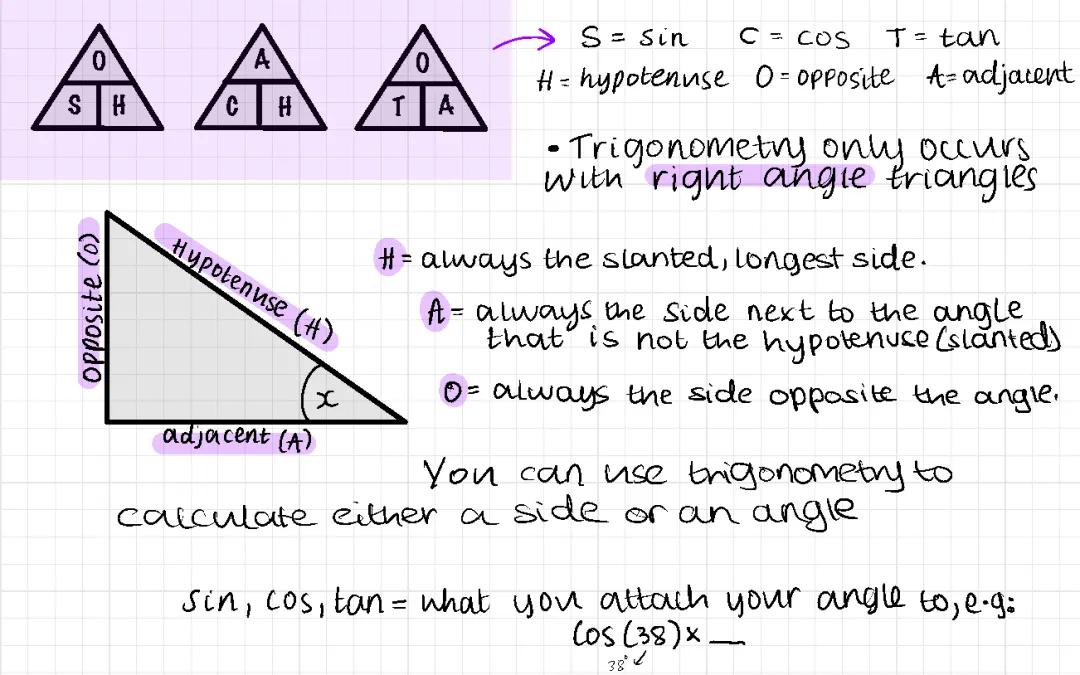 O
S H
A
C H
O
T A
S = sin C = cos T = tan
H = hypotenuse O = opposite A = adjacent
• Trigonometry only occurs
with right angle triangles
opposite (O)
Hypotenuse (H)
x
adjacent (A)
H = always the slanted, longest side.
A = always the side next to the angle
that is not the hypotenuse (slanted)
O = always the side opposite the angle.
You can use trigonometry to
calculate either a side or an angle
sin, cos, tan = what you attach your angle to, e.g:
Cos (38) × __
38°